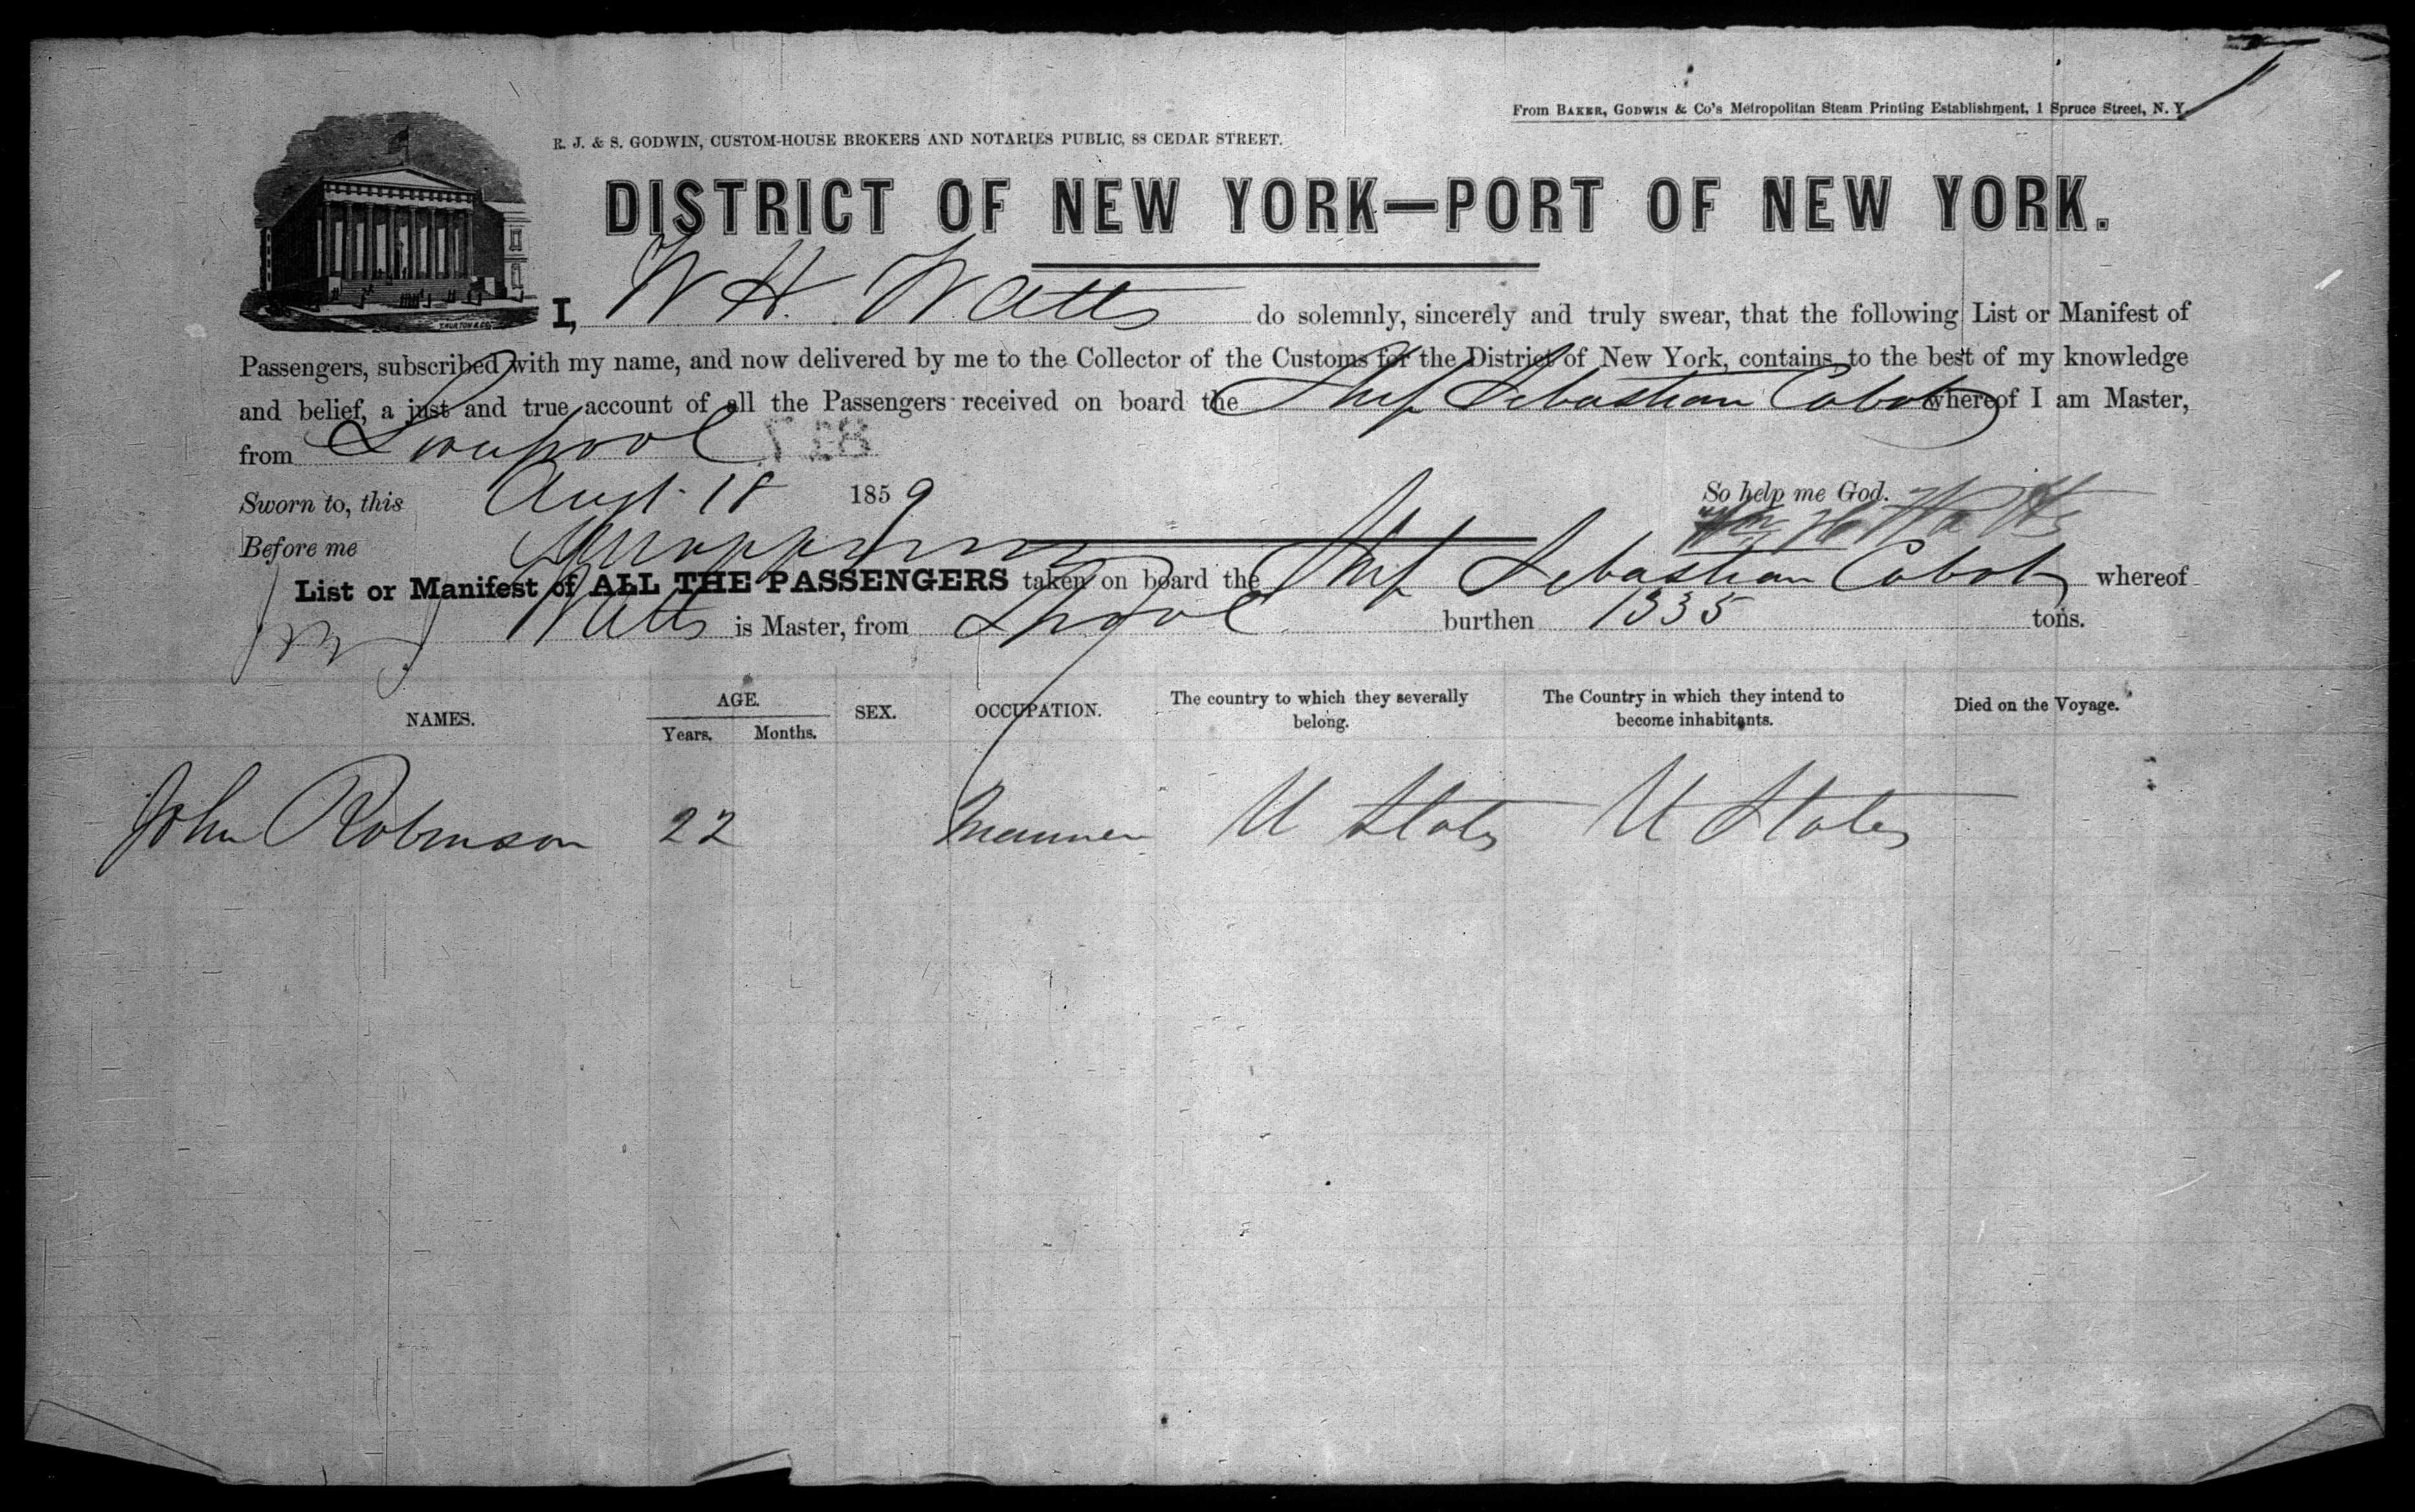 From BAKER, GODWIN & Co's Metropolitan Steam Printing Establishment, 1 Spruce Street, N. Y.
R. J. & S. GODWIN, CUSTOM-HOUSE BROKERS AND NOTARIES PUBLIC, 88 CEDAR STREET.
DISTRICT OF NEW YORK—PORT OF NEW YORK.
I, W H. Watts do solemnly, sincerely and truly swear, that the following List or Manifest of
Passengers, subscribed with my name, and now delivered by me to the Collector of the Customs for the District of New York, contains, to the best of my knowledge
and belief, a just and true account of all the Passengers received on board the Ship Sebastian Cabot whereof I am Master,
from Liverpool
Sworn to, this Augt 18 1859 So help me God.
Before me Wm H Watts
List or Manifest of ALL THE PASSENGERS taken on board the Ship Sebastian Cabot whereof
Watts is Master, from Lpool burthen 1335 tons.
NAMES. AGE. Years. Months. SEX. OCCUPATION. The country to which they severally belong. The Country in which they intend to become inhabitants. Died on the Voyage.
John Robinson 22 Mariner U States U States